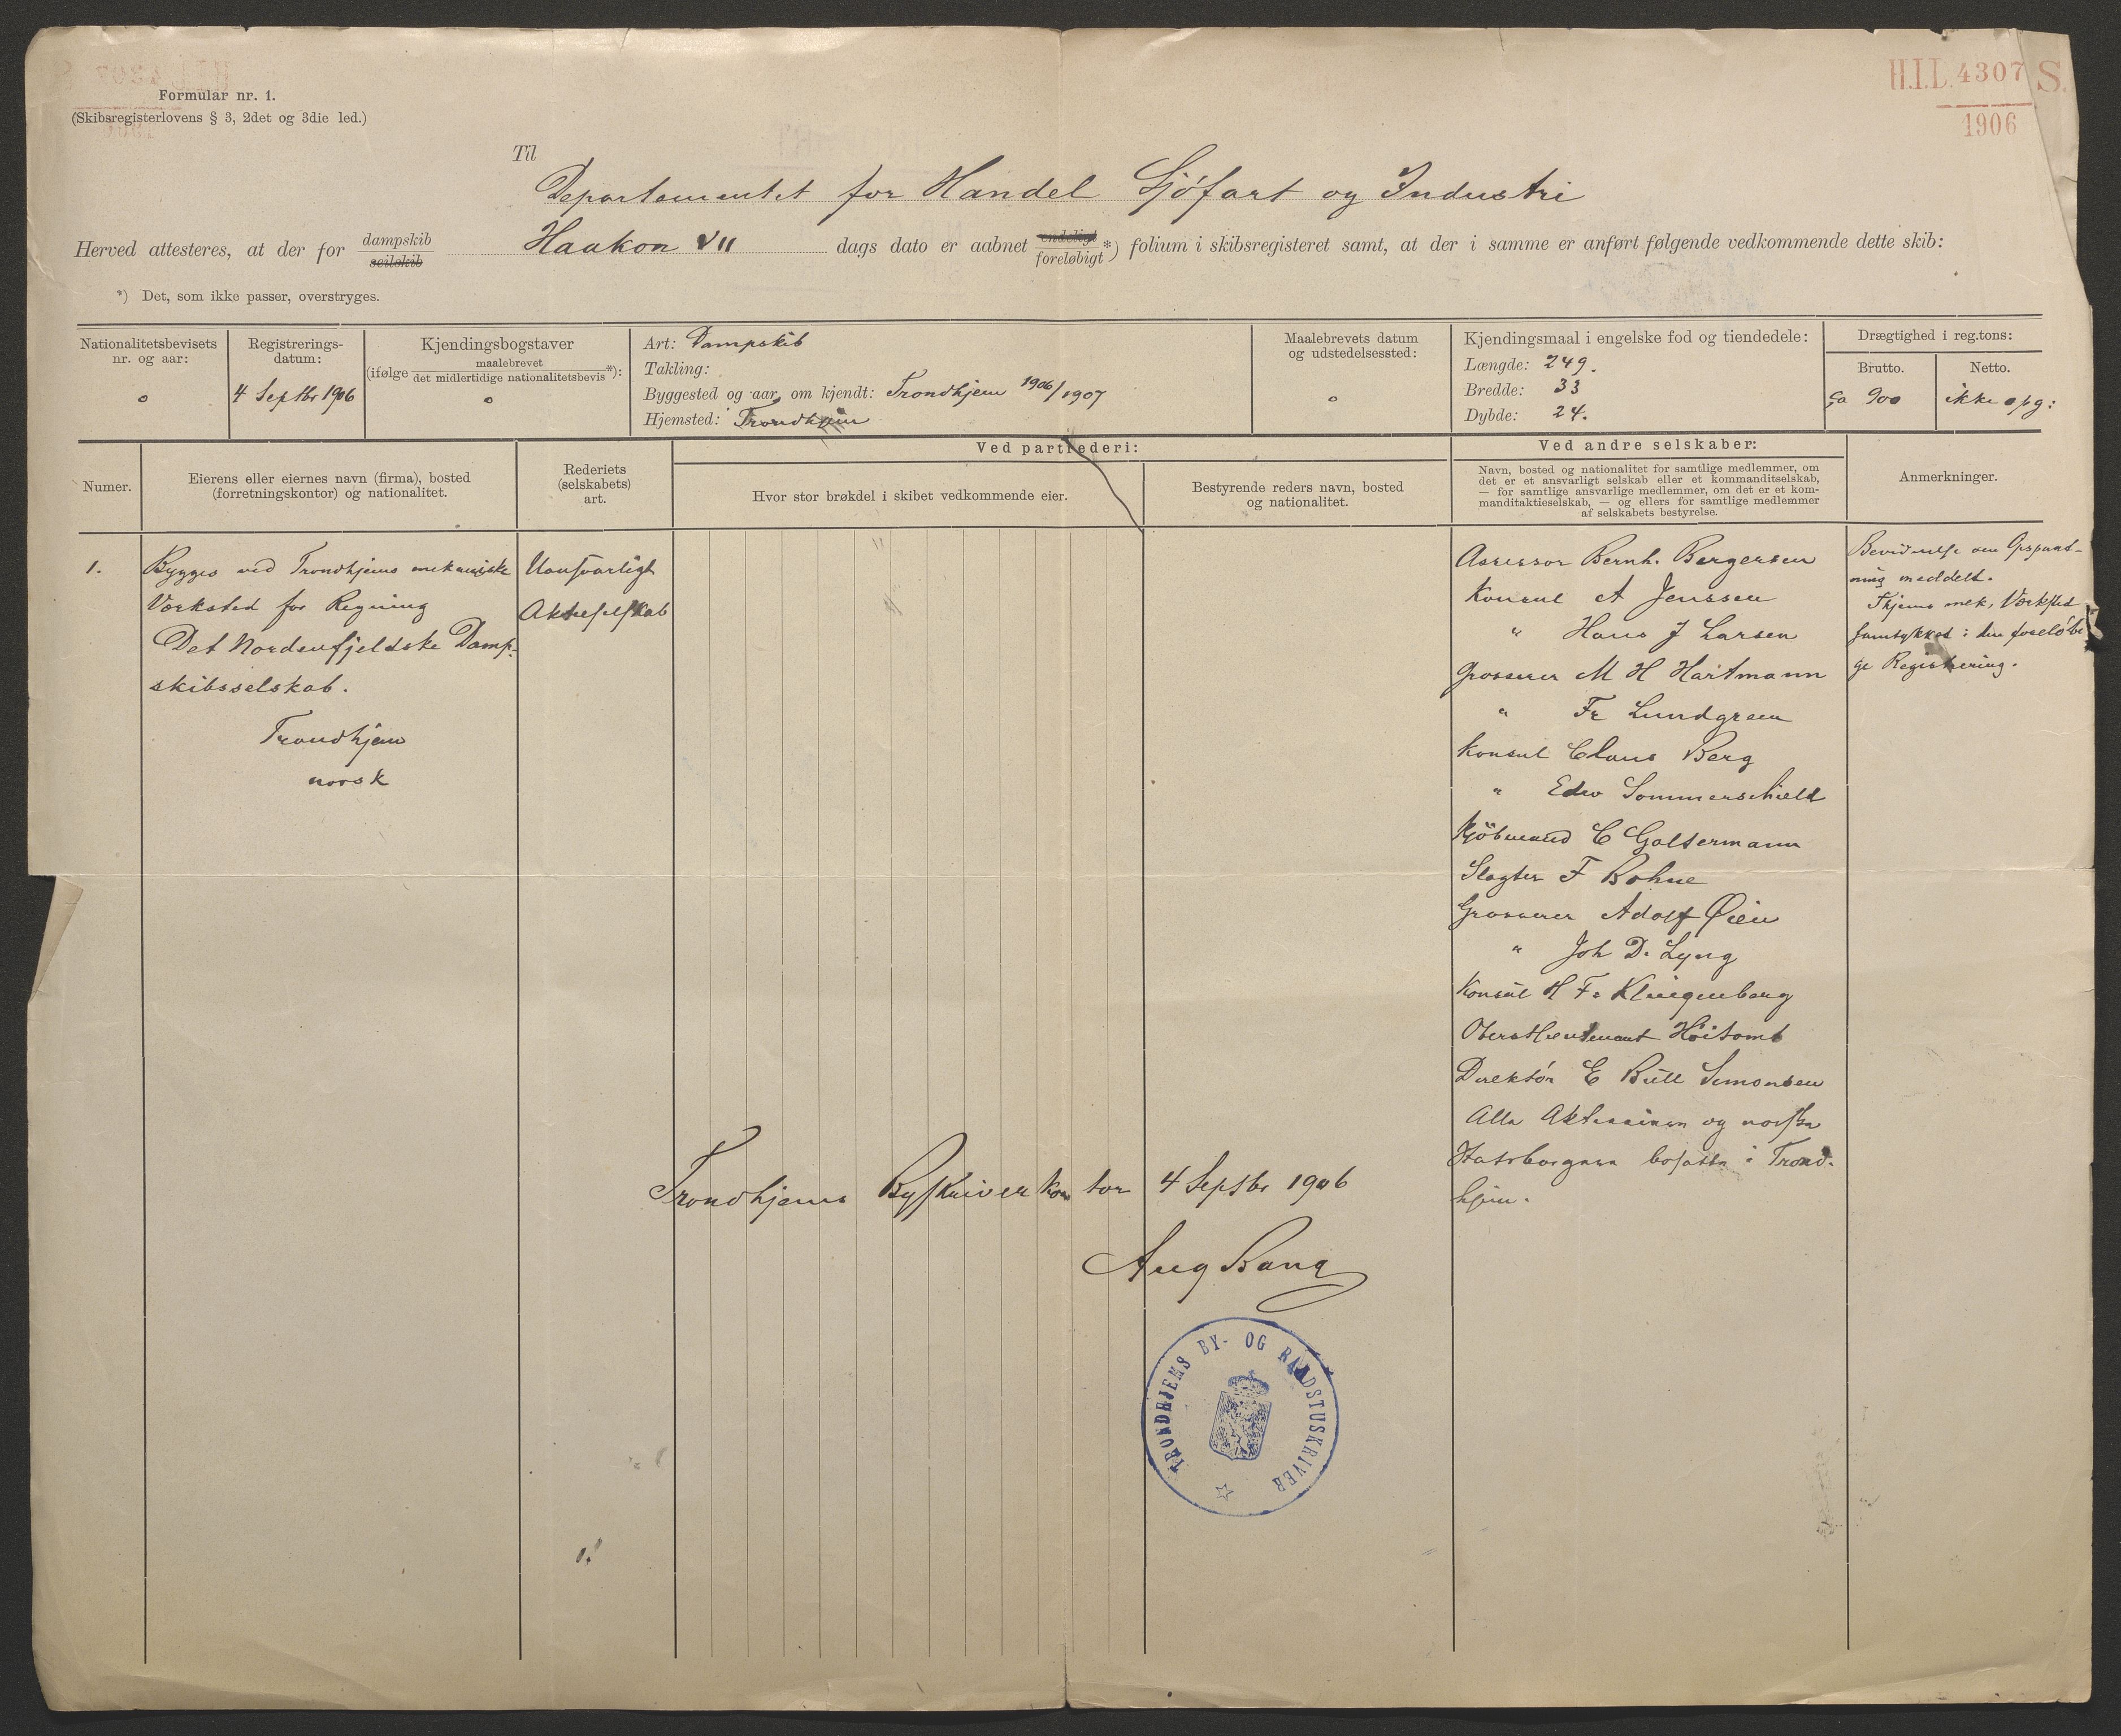 H.I.L. 4307 S.
1906
Formular nr. 1.
(Skibsregisterlovens § 3, 2det og 3die led.)
Til
Departementet for Handel Sjöfart og Industri
Herved attesteres, at der for dampskib seilskib Haakon VII dags dato er aabnet endeligt foreløbigt *) folium i skibsregisteret samt, at der i samme er anført følgende vedkommende dette skib:
*) Det, som ikke passer, overstryges.
Nationalitetsbevisets
nr. og aar:
o
Registrerings-
datum:
4 Septbr 1906
Kjendingsbogstaver
(ifølge maalebrevet det midlertidige nationalitetsbevis *):
o
Art: Dampskib
Takling:
Byggested og aar, om kjendt: Trondhjem 1906/1907
Hjemsted: Trondhjem
Maalebrevets datum
og udstedelsessted:
o
Kjendingsmaal i engelske fod og tiendedele:
Længde: 249.
Bredde: 33
Dybde: 24.
Drægtighed i reg.tons:
Brutto.
ca 900
Netto.
ikke opg:
Numer.
Eierens eller eiernes navn (firma), bosted
(forretningskontor) og nationalitet.
Rederiets
(selskabets)
art.
Ved partrederi:
Hvor stor brøkdel i skibet vedkommende eier.
Bestyrende reders navn, bosted
og nationalitet.
Ved andre selskaber:
Navn, bosted og nationalitet for samtlige medlemmer, om
det er et ansvarligt selskab eller et kommanditselskab,
— for samtlige ansvarlige medlemmer, om det er et kom-
manditaktieselskab, — og ellers for samtlige medlemmer
af selskabets bestyrelse.
Anmerkninger.
1.
Bygges ved Trondhjems mekaniske
Værksted for Regning
Det Nordenfjeldske Damp-
skibsselskab.
Trondhjem
norsk
Uansvarligt
Aktieselskab
Assessor Bernh. Bergersen
Konsul A Jenssen
" Hans J Larsen
Grosserer M H Hartmann
" Fr Lundgreen
Konsul Claus Berg
" Edw Sommerschield
Kjöbmand C Goltermann
Slagter F Bohne
Grosserer Adolf Øien
" Joh D. Lyng
Konsul H Fr Klingenberg
Oberstlieutenant Höitomt
Direktör E Bull Simonsen
Alle Aktieeiere og norske
Statsborgere bosatte i Trond-
hjem.
Bevidnelse om Opspant-
ning meddelt.
Thjems mek. Værksted
samtykket i den foreløbi-
ge Registrering.
Trondhjems Byskriverkontor 4 Septbr 1906
Aug Bang
TRONDHJEMS BY- OG RAADSTUSKRIVER